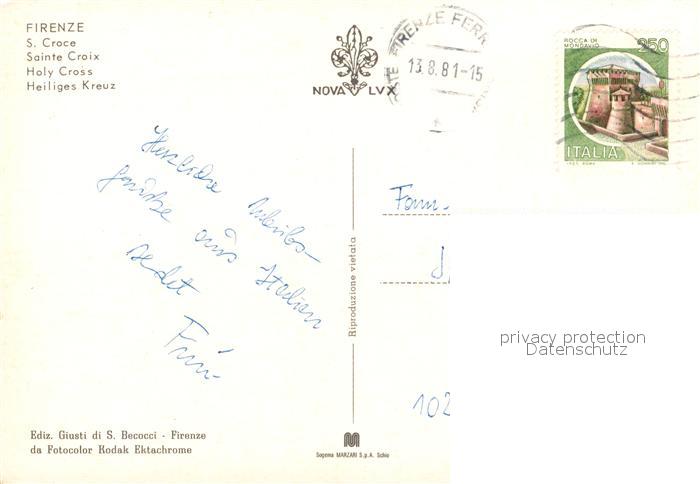 FIRENZE
S. Croce
Sainte Croix
Holy Cross
Heiliges Kreuz
NOVA LVX
FIRENZE FERR
13.8.81-15
ROCCA DI
MONDAVIO
250
ITALIA
Herzliche Urlaubs-
grüße aus Italien
sedet
Fam.
Riproduzione vietata
102
privacy protection
Datenschutz
Ediz. Giusti di S. Becocci - Firenze
da Fotocolor Kodak Ektachrome
Sogema MARZARI S.p.A. Schio